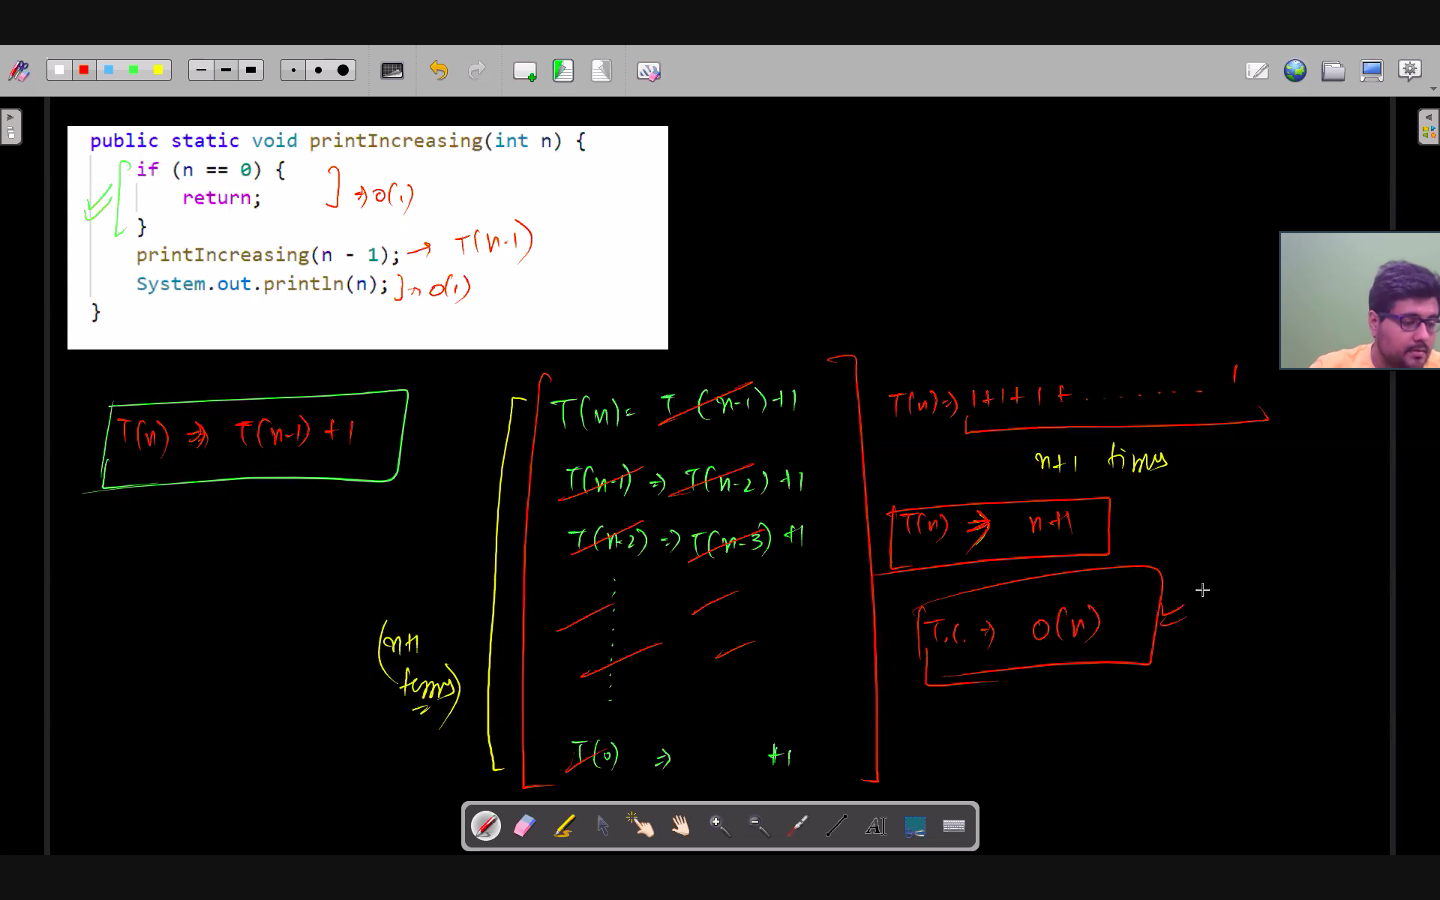 public static void printIncreasing(int n) {
if (n == 0) {
return;
} ⇒ O(1)
printIncreasing(n - 1); → T(n-1)
System.out.println(n); ] → O(1)
}
T(n) ⇒ T(n-1) + 1
T(n) = T(n-1) + 1
T(n-1) ⇒ T(n-2) + 1
T(n-2) ⇒ T(n-3) + 1
T(0) ⇒ +1
(n+1
terms)
T(n) ⇒ 1+1+1+ ........ 1
n+1 times
T(n) ⇒ n+1
T.C. ⇒ O(n)
AI